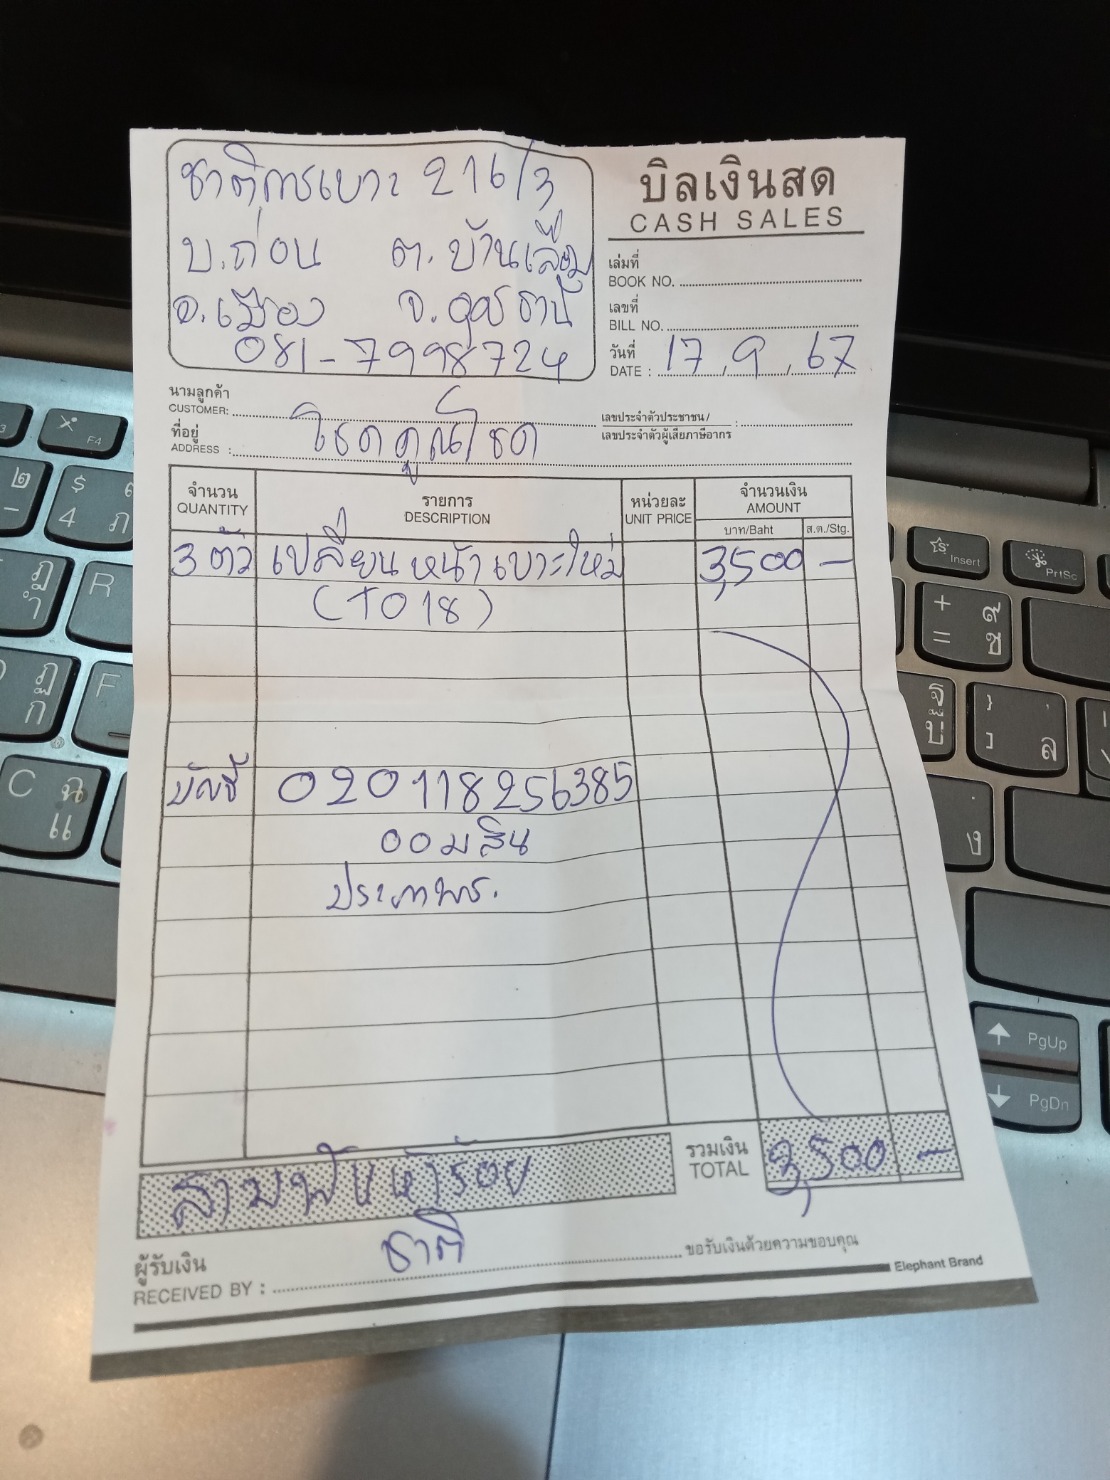 ชาติการเบาะ 216/3
บ.ถ่อน ต.บ้านเลื่อม
อ.เมือง จ.อุดรธานี
081-7998724
บิลเงินสด
CASH SALES
เล่มที่
BOOK NO.
เลขที่
BILL NO.
วันที่
DATE : 17 , 9 , 67
นามลูกค้า
CUSTOMER:
โชคคูณโชค
เลขประจำตัวประชาชน/
เลขประจำตัวผู้เสียภาษีอากร :
ที่อยู่
ADDRESS :
จำนวน รายการ หน่วยละ จำนวนเงิน
QUANTITY DESCRIPTION UNIT PRICE AMOUNT
บาท/Baht ส.ต./Stg.
3 ตัว เปลี่ยนหน้าเบาะใหม่ 3,500 -
(TO18)
บัญชี 020118256385
ออมสิน
สามพันห้าร้อย
รวมเงิน
TOTAL 3,500 -
ผู้รับเงิน
RECEIVED BY : ชาติ
ขอรับเงินด้วยความขอบคุณ
Elephant Brand
F4
$
4 ภ
R
F
C ฉ
แ
Insert
PrtSc
+
= ช
}
] ล
ง
PgUp
PgDn